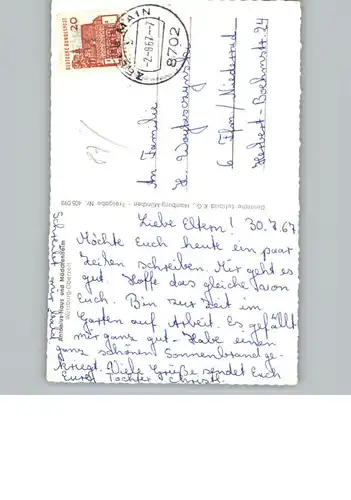 Liebe Eltern! 30.7.67
Möchte Euch heute ein paar
Zeilen schreiben. Mir geht es
gut. Hoffe das gleiche von
Euch. Bin zur Zeit im
Garten auf Arbeit. Es gefällt
mir ganz gut - Habe einen
ganz schönen Sonnenbrand ge-
kriegt. Viele Grüße sendet Euch
Eure Tochter Christl.
Schreibt mir
Antonius-Haus und Mädchenheim
Würzburg-Oberzell
Deutsche Luftbild K.G., Hamburg-München - Freigabe Nr.
An Familie
H.
6 Ffm/Niederrad
24
DEUTSCHE BUNDESPOST
20
MAIN
-2.8.67-7
8702